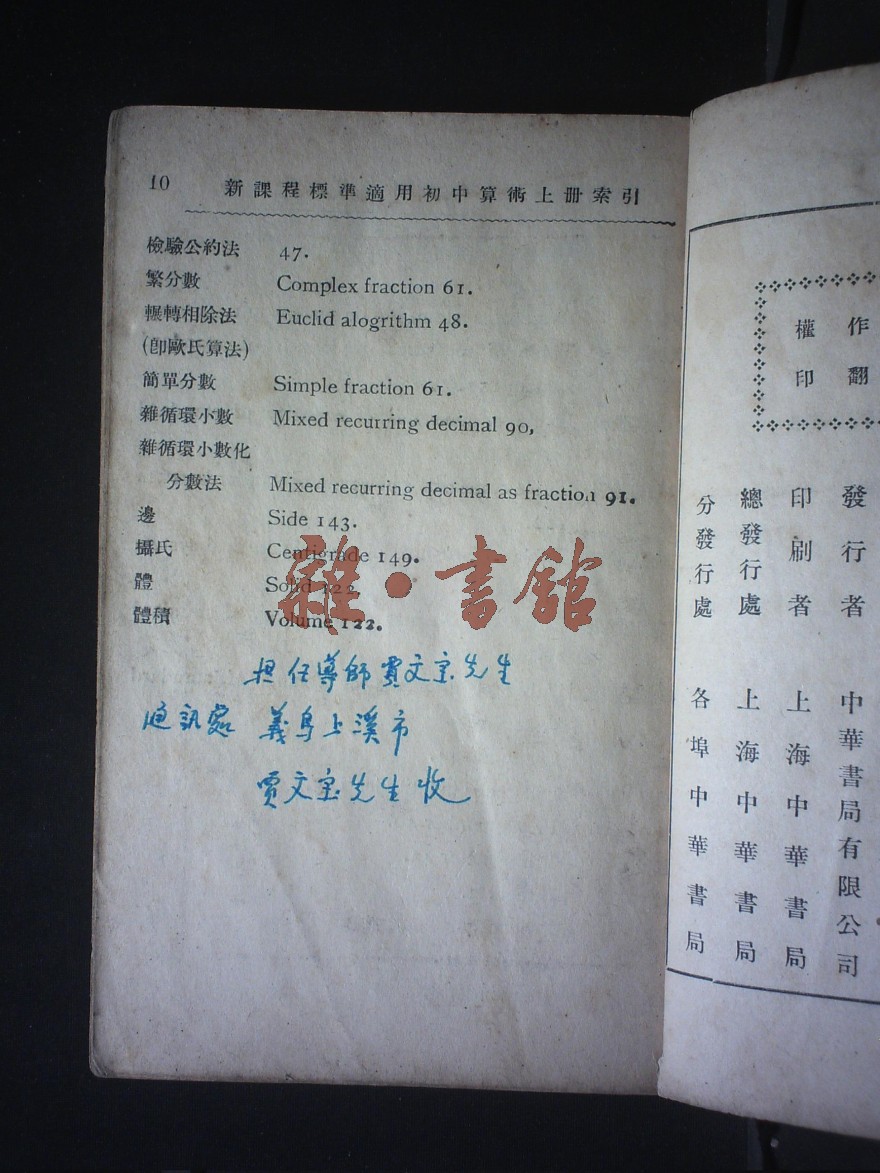 10 新課程標準適用初中算術上册索引
檢驗公約法 47.
繁分數 Complex fraction 61.
輾轉相除法 Euclid alogrithm 48.
(卽歐氏算法)
簡單分數 Simple fraction 61.
雜循環小數 Mixed recurring decimal 90,
雜循環小數化
分數法 Mixed recurring decimal as fraction 91.
邊 Side 143.
攝氏 Centigrade 149.
體 Solid 122.
體積 Volume 122.
雜·書館
担任導師賈文宗先生
通訊處 義烏上溪市
賈文宗先生收
作 翻
權 印
發行者 中華書局有限公司
印刷者 上海中華書局
總發行處 上海中華書局
分發行處 各埠中華書局